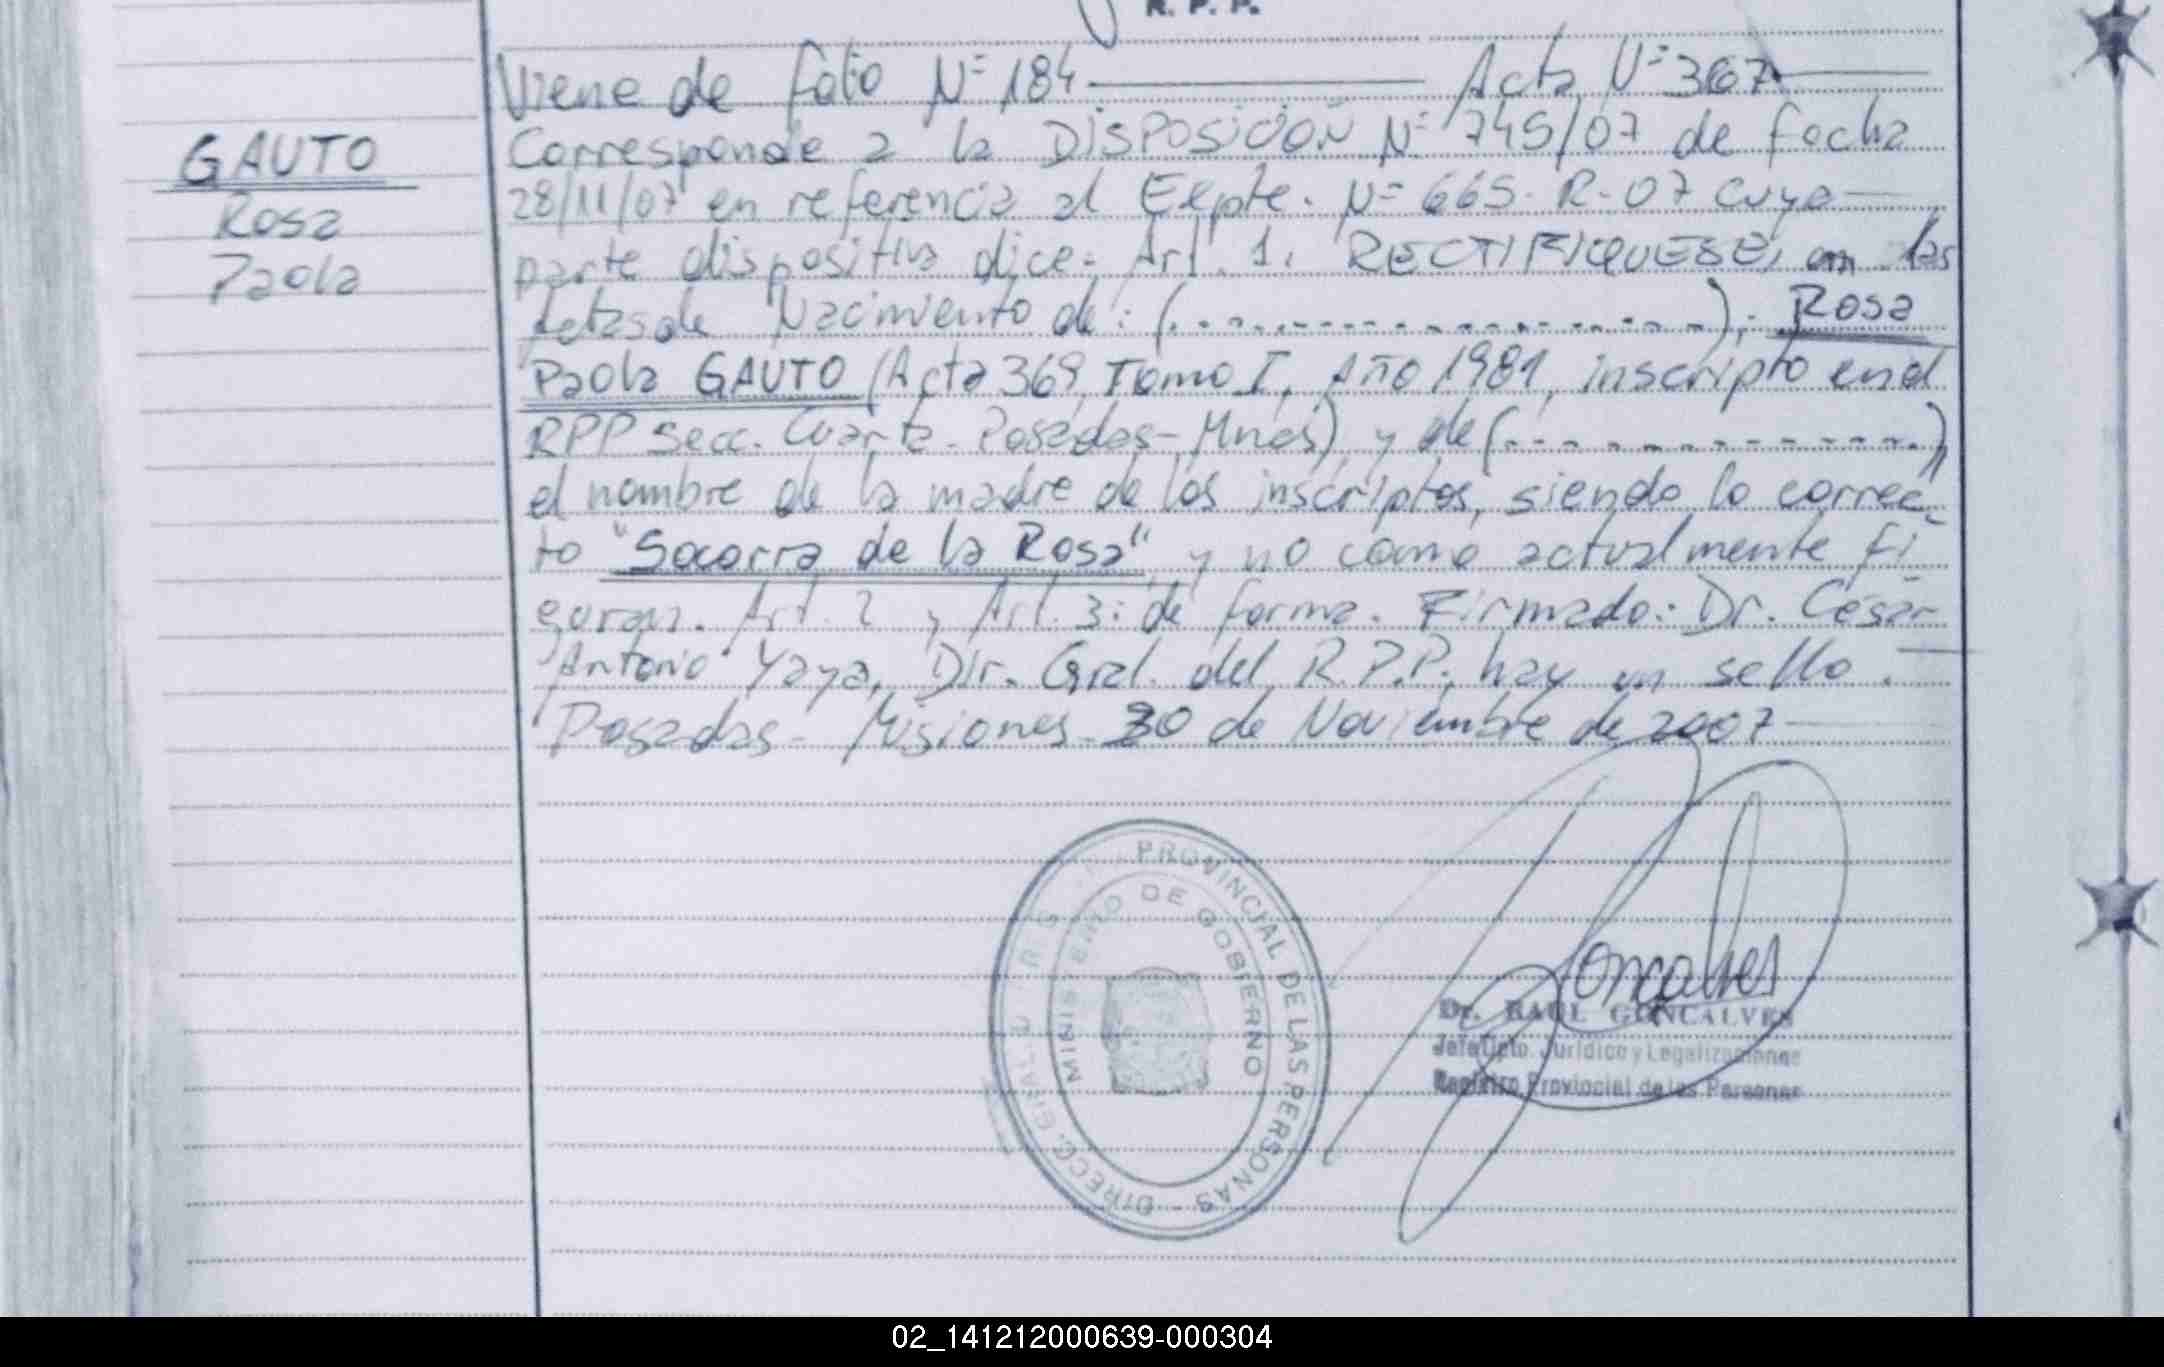 R. P. P.
Viene de folio Nº 184 Acta Nº 367
GAUTO
Rosa
Paola
Corresponde a la DISPOSICIÓN Nº 745/07 de fecha
28/11/07 en referencia al Expte. Nº 665-R-07 cuya
parte dispositiva dice: Art. 1: RECTIFIQUESE, en las
Actas de Nacimiento de: (...................); Rosa
Paola GAUTO (Acta 369, Tomo I, Año 1981, inscripto en el
RPP Secc. Cuarta - Posadas - Mnes) y de (..............)
el nombre de la madre de los inscriptos, siendo lo correc
to "Socorra de la Rosa" y no como actualmente fi
guran. Art. 2 y Art. 3: de forma. Firmado: Dr. César
Antonio Yaya, Dir. Gral. del R.P.P.; hay un sello.
Posadas - Misiones 30 de Noviembre de 2007
PROVINCIAL DE LAS PERSONAS - DIRECC. GRAL
MINISTERIO DE GOBIERNO
Goncalves
Dr. RAUL GONCALVES
Jefe Dpto. Jurídico y Legalizaciones
Registro Provincial de las Personas
02_141212000639-000304